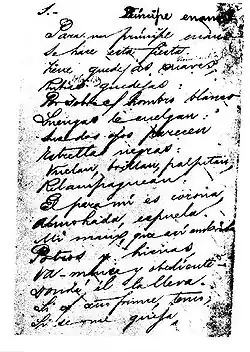 1.- Príncipe enano
Para un príncipe enano
Se hace esta fiesta.
Tiene guedejas suaves
guedejas:
Por sobre el hombro blanco
Luengas le cuelgan:
Sus dos ojos parecen
Estrellas negras:
Vuelan, brillan, palpitan,
Relampaguean
El para mí es corona,
Almohada, espuela.
Mi mano, que así embrida
Potros y hienas,
Va mansa y obediente
Donde él la lleva.
Si el ceño frunce, temo;
Si se me queja,